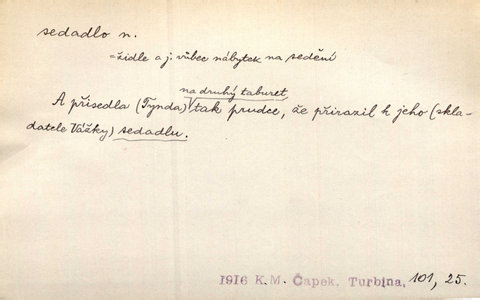 sedadlo n.
= židle a j. vůbec nábytek na sedění
na druhý taburet
A přisedla (Tynda) tak prudce, že přirazil k jeho (skla-
datele Vážky) sedadlu.
1916 K.M. Čapek, Turbina, 101, 25.